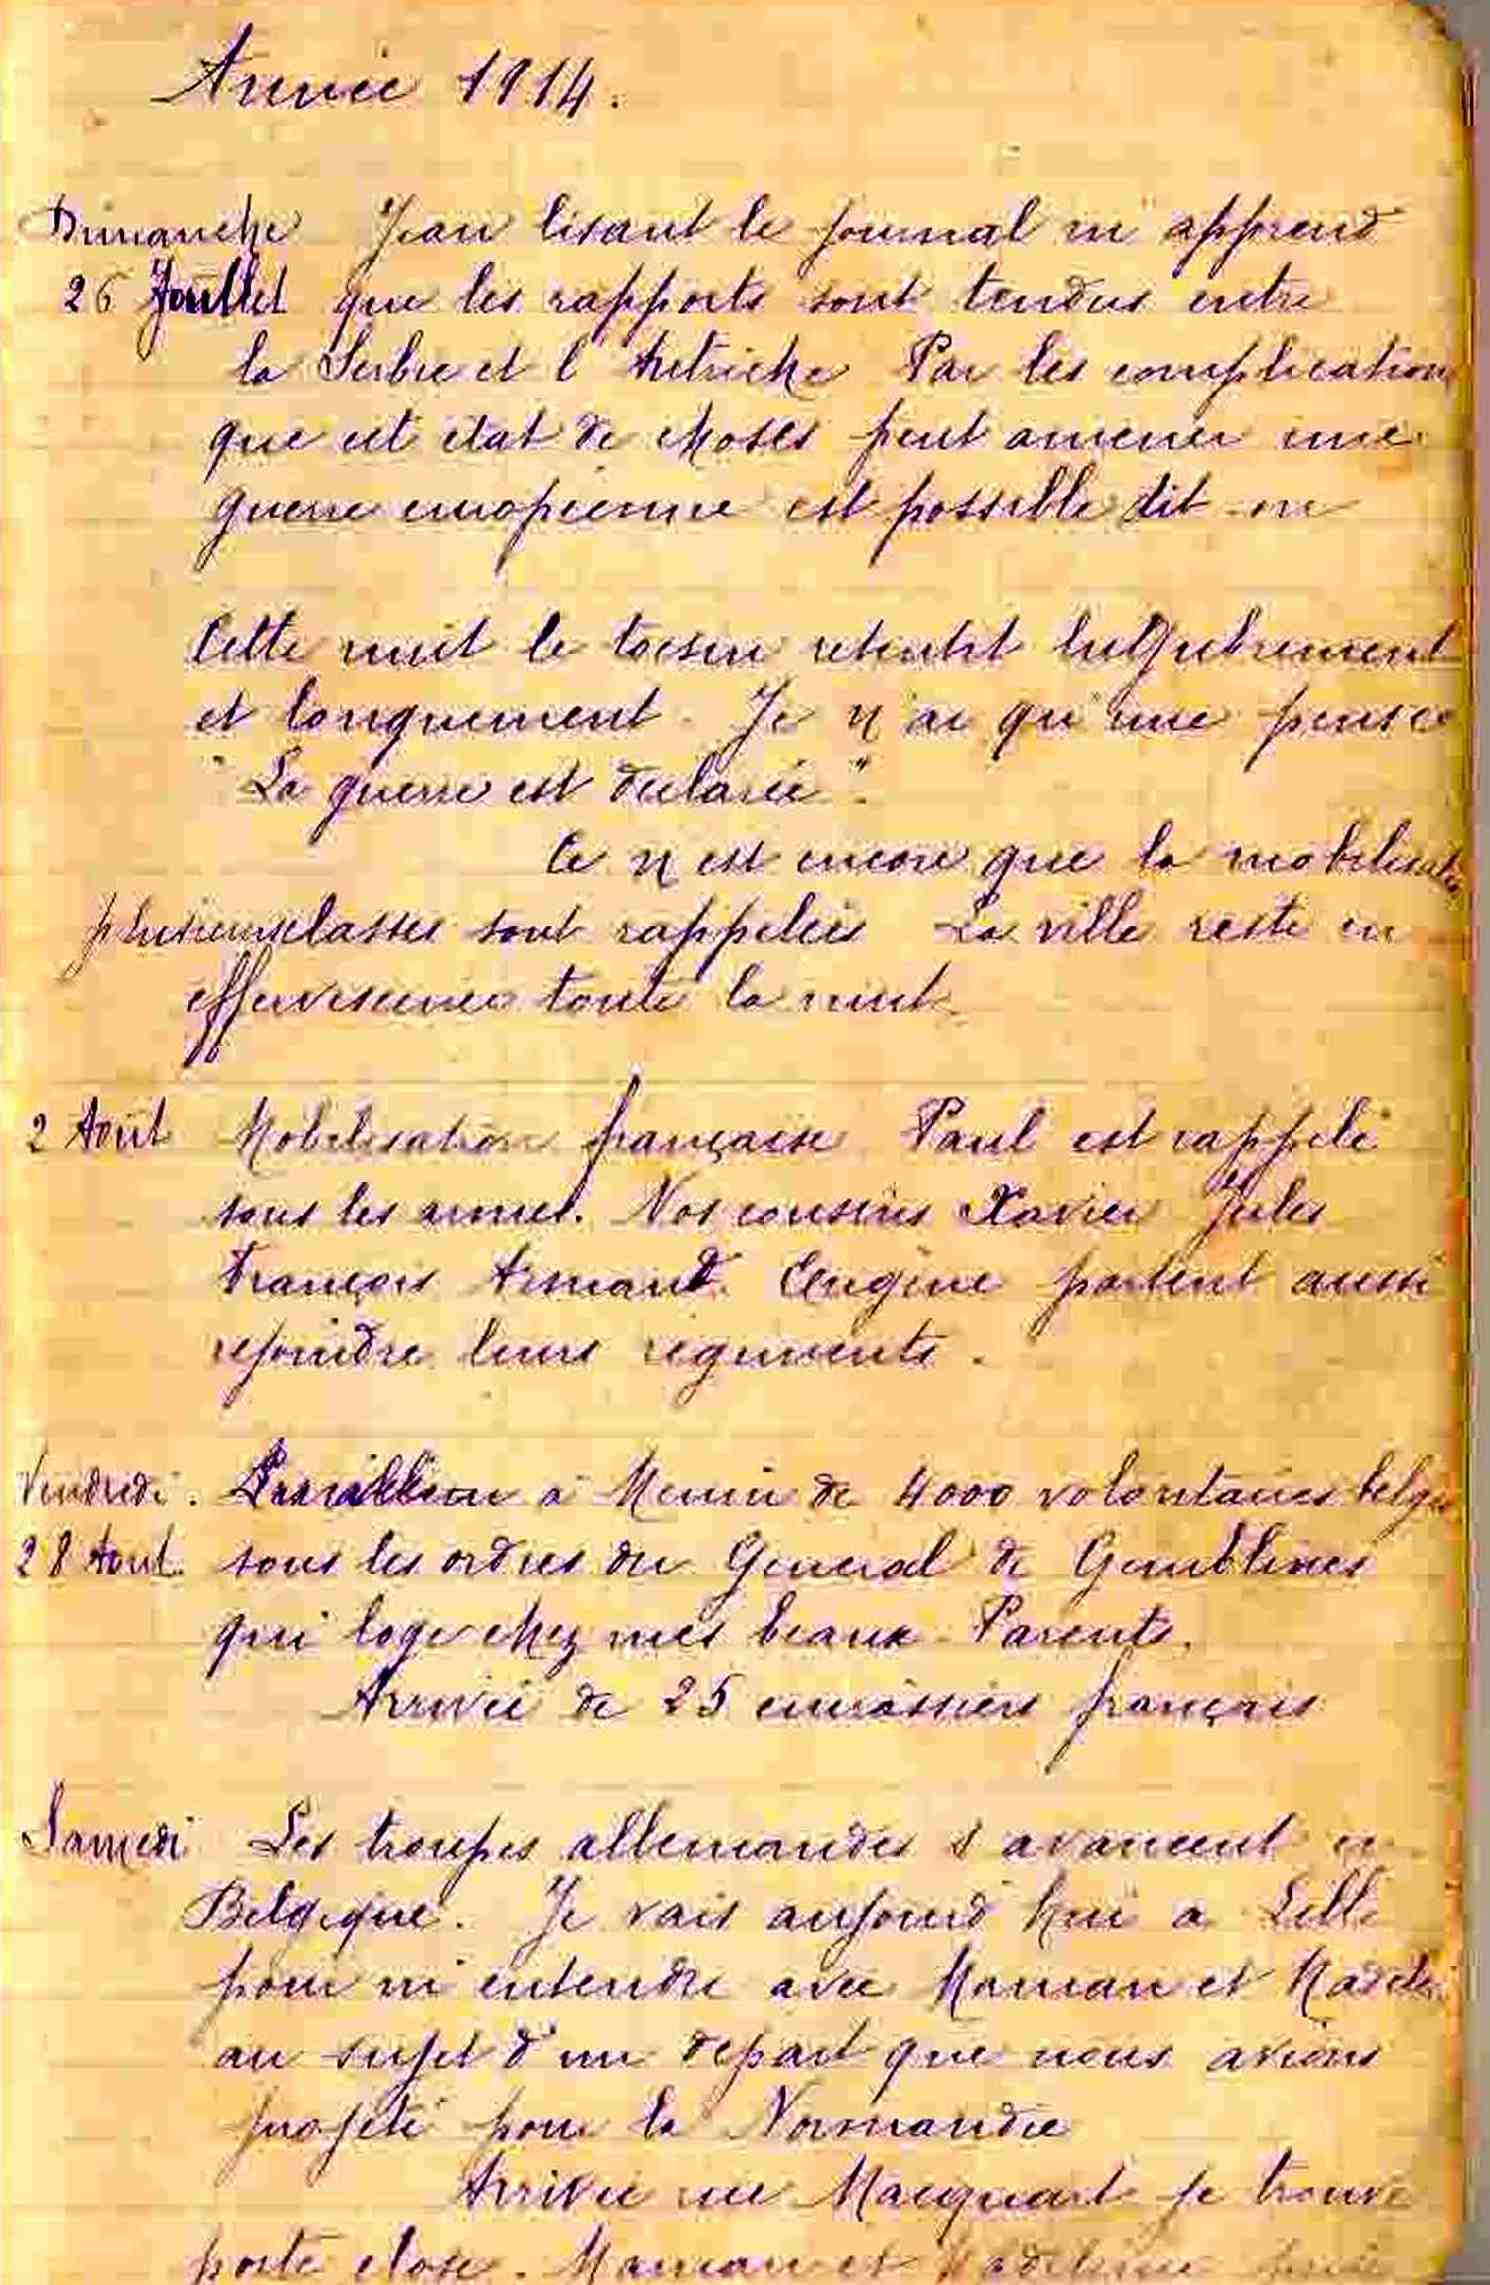 Année 1914.
Dimanche Jean lisant le journal m'apprend
26 Juillet que les rapports sont tendus entre
la Serbie et l'Autriche Par les complications
que cet état de choses peut amener une
guerre européenne est possible dit-on
Cette nuit le tocsin retentit lugubrement
et longuement. Je n'ai qu'une pensée
"La guerre est déclarée".
Ce n'est encore que la mobilisation
plusieurs classes sont rappelées La ville reste en
effervescence toute la nuit
2 Août Mobilisation française Paul est rappelé
sous les armes. Nos cousins Xavier Jules
François Armand. Eugène partent aussi
rejoindre leurs régiments.
Vendredi. à Menin de 4000 volontaires belges
28 Aout. sous les ordres du Général de
qui loge chez mes beaux-Parents.
Arrivée de 25 cuirassiers français
Samedi Les troupes allemandes s'avancent en
Belgique. Je vais aujourd'hui a Lille
pour m'entendre avec Maman et
au sujet d'un départ que nous avions
projeté pour la Normandie
Arrivée rue Macquart je trouve
porte close. Maman et Madeleine